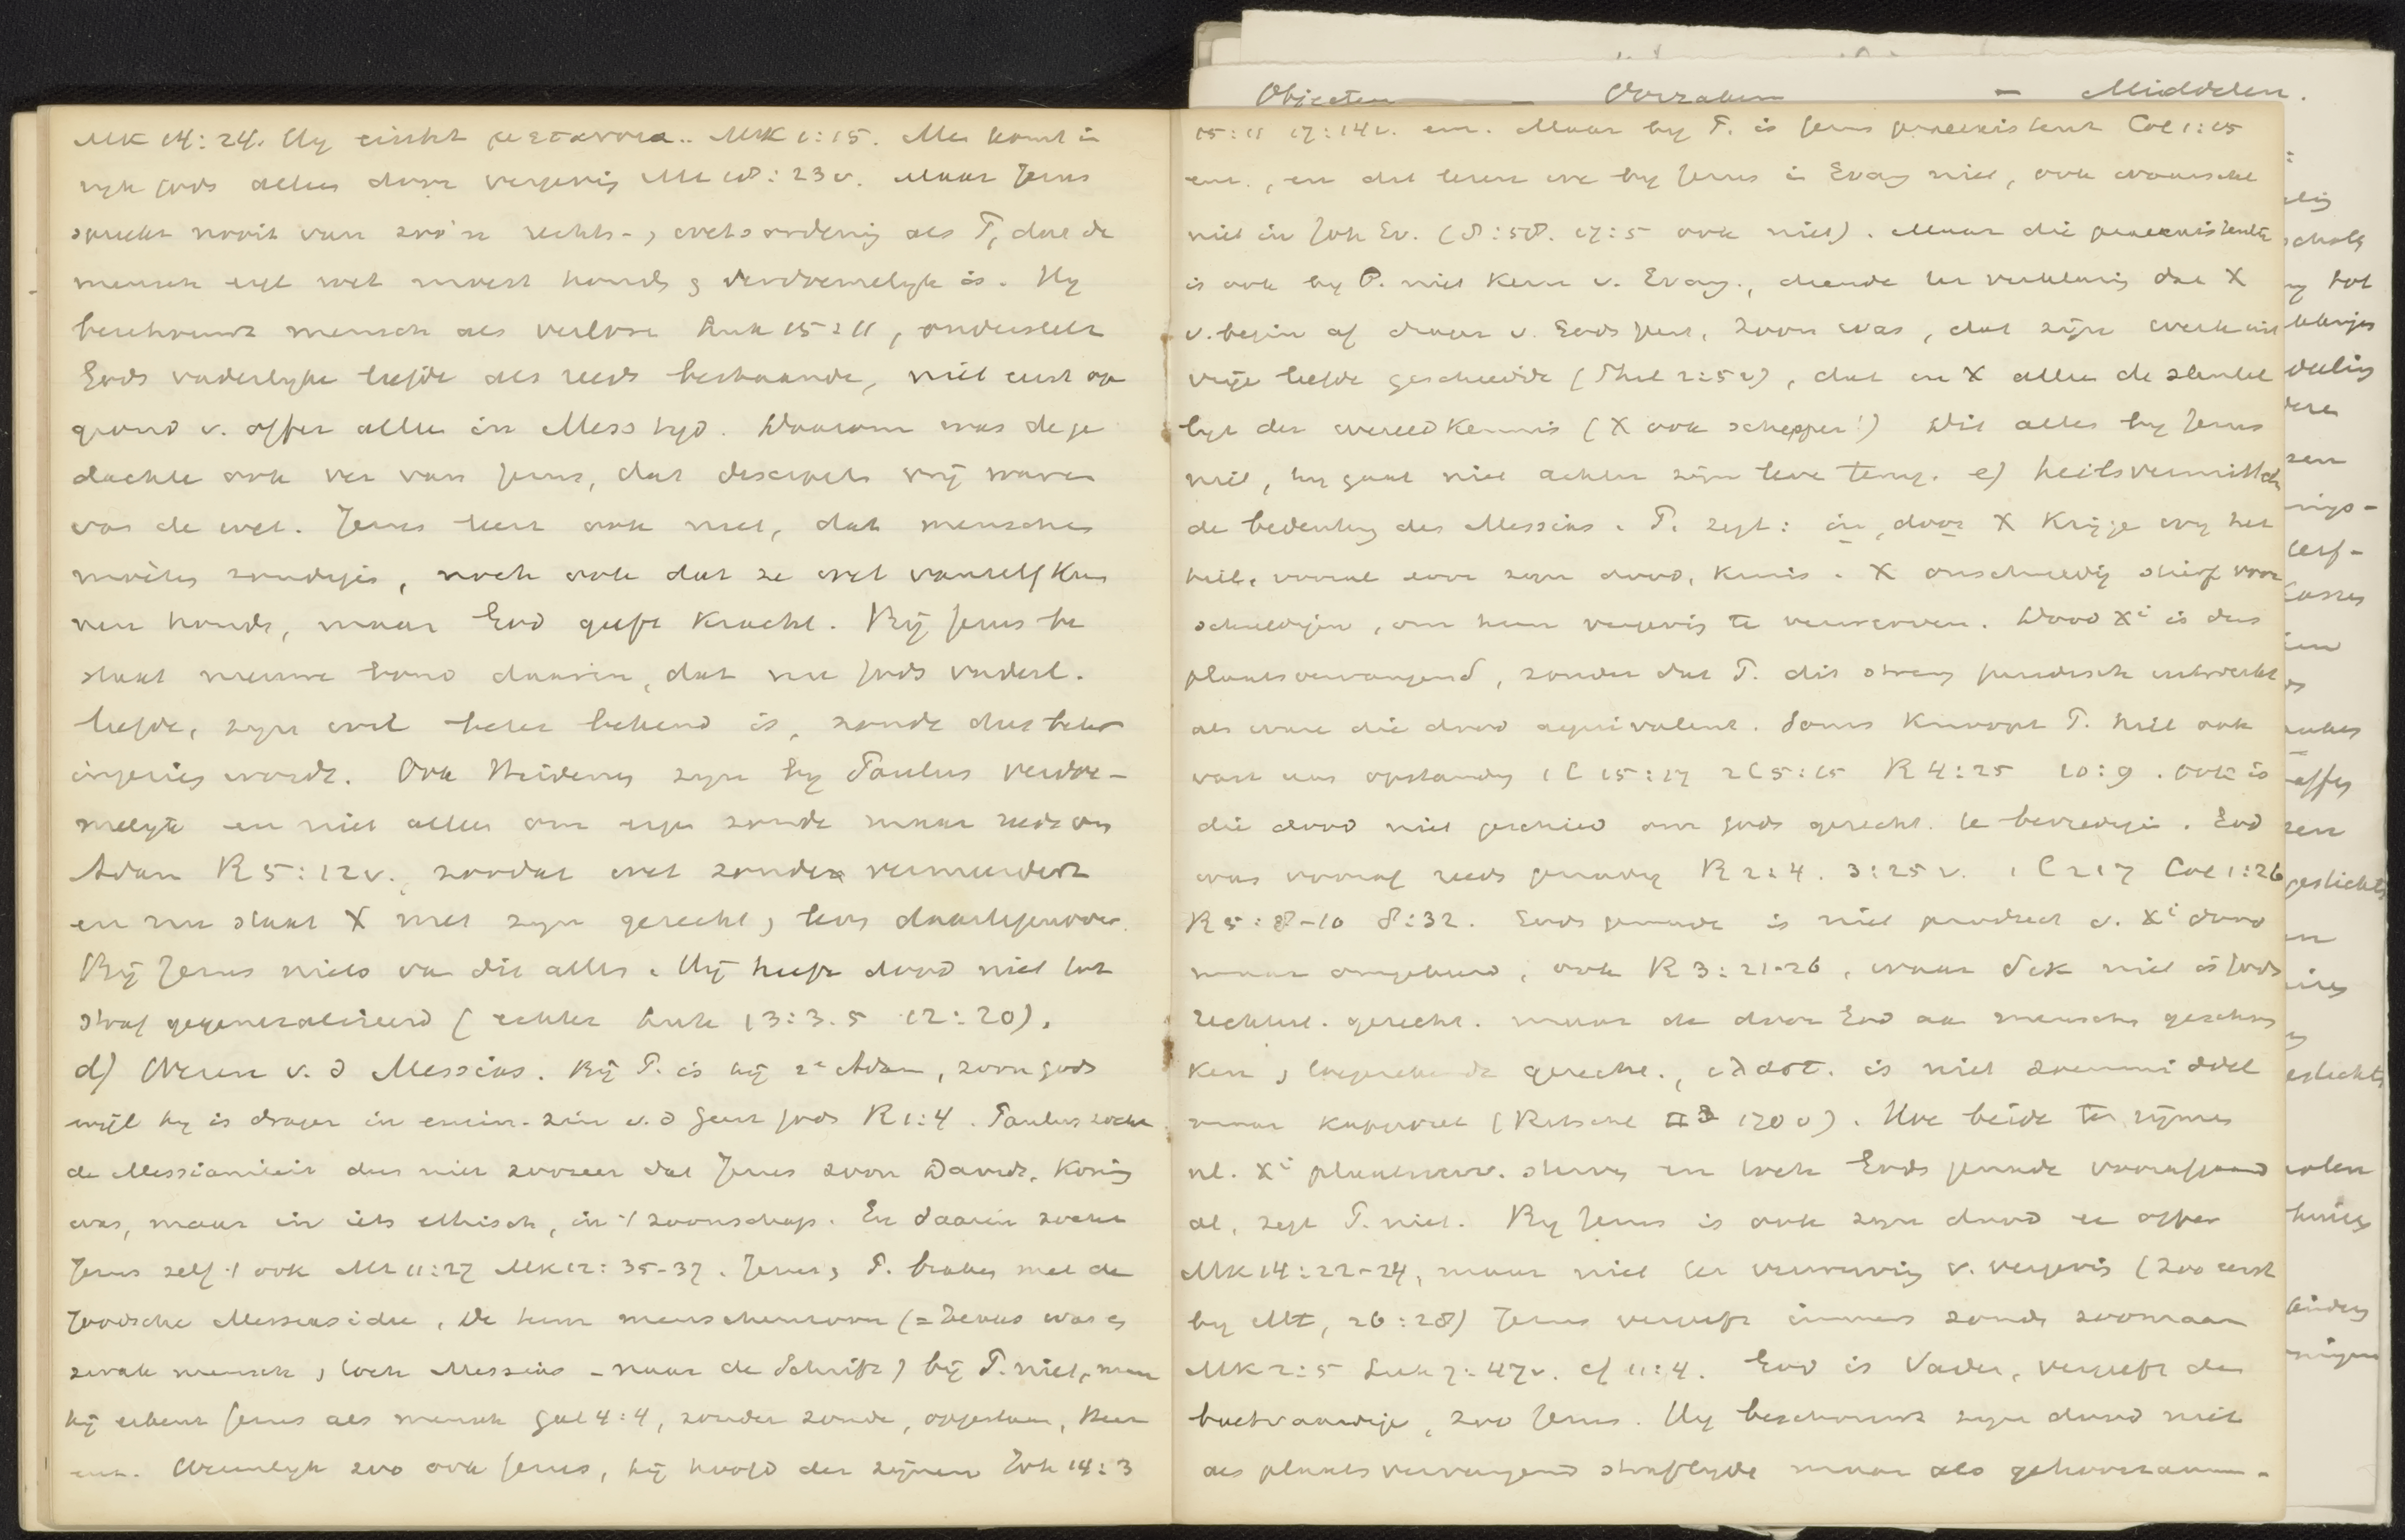 Objecten — Oorzaken — Middelen.
Mk 14:24. Hy eischt μετανοια.. Mk 1:15. Men komt in
ryk Gods alleen door vergevig Mt 18:23v. Maar Jezus
spreekt nooit van zoo'n rechts-, wetsordening als P, dat de
mensch eyl wet moest houde, verdoemelyk is. Hy
beschouwt mensch als verlore Luk 15:11, onderstelt
Gods vaderlyke liefde als reeds bestaande, niet eerst op
grond v. offer alleen in Mess tyd. Daarom was de ge
dachte ook ver van Jezus, dat discipels vrij waren
van de wet. Jezus leert ook niet, dat menschen
moeten zondigen, noch ook dat ze wet vanzelf kun
nen houde, maar God geeft kracht. Bij Jezus be
staat nieuwe bond daarin, dat nu Gods vaderl.
liefde, zyn wil beter bekend is, zonde dus beter
ingezien wordt. Ook Heidenen zyn by Paulus verdoe-
melyk en niet alleen om eige zonde maar reeds om
Adam R 5:12v., zoodat wet zonden vermeerdert
en nu staat X met zyn gerecht, leve daartegenover.
Bij Jezus niets van dit alles. Hij heeft dood niet tot
straf gegeneraliseerd (echter Luk 13:3.5 12:20).
d) Wezen v. d Messias. Bij P. is hij 2e Adam, zoon Gods
wijl hy is drager in emin. zin v. d Geest Gods R 1:4. Paulus zocht
de Messianiteit dus niet zoozeer dat Jezus zoon Davids, Koning
was, maar in iets ethisch, in 't zoonschap. En daarin zocht
Jezus zelf 't ook Mt 11:27 Mk 12:35-37. Jezus, P. braken met de
Joodsche Messiasidee. De term menschenzoon (= Jezus was
zwak mensch, toch Messias - naar de Schrift) bij P. niet, maar
hij erkent Jezus als mensch Gal 4:4, zonder zonde, opgestaan, Heer
enz. Wezenlyk zoo ook Jezus, hij hoofd der zijnen Joh 14:3
15:11 17:14v. enz. Maar by P. is Jezus praeexistent Col 1:15
enz., en dat leren we by Jezus in Evang niet, ook waarschl
niet in Joh Ev. (8:58. 17:5 ook niet). Maar die praeexistentie
is ook by P. niet kern v. Evang., diende ter verklaring dat X
v. begin af drager v. Gods geest, zoon was, dat zijn werk uit
vrije liefde geschiedde (Phil 2:5v), dat in X alleen de sleutel
ligt der wereldkennis (X ook schepper!) Dit alles by Jezus
niet, hy gaat niet achter zyn leve terug. e) heilsvermittelde
de beduiding des Messias. P. zegt: in, door X krijge wy het
heil, vooral door zyn dood, kruis. X onschuldig stierf voor
schuldigen, om hun vergevig te verwerven. Dood Xi is dus
plaatsvervangend, zonder dat P. dit streng juridisch uitwerkt
als ware die dood aequivalent. Soms knoopt P. heil ook
vast aan opstanding 1 C 15:17 2 C 5:15 R 4:25 10:9. Ook is
die dood niet geschied om Gods gerecht. te bevredigen. God
was vooraf reeds genadig R 2:4. 3:25v. 1 C 2:7 Col 1:26
R 5:8-10 8:32. Gods genade is niet product v. Xi dood
maar omgekeerd, ook R 3:21-26, waar δικ niet is Gods
rechterl. gerecht. maar de door God aa mensche geschon
ken, toegerekende gerecht., ιλαστ. is niet zoenmiddel
maar kapporet (Ritschl II 3 170v). Hoe beide te rijmen
nl. Xi plaatsverv. sterve en toch Gods genade voorafgaand
al, zegt P. niet. By Jezus is ook zyn dood een offer
Mk 14:22-24, maar niet ter verwerving v. vergevig (zoo eerst
by Mt, 26:28) Jezus vergeeft immers zonde zoomaar
Mk 2:5 Luk 7:47v. cf 11:4. God is Vader, vergeeft den
boetvaardige, zoo Jezus. Hy beschouwt zyn dood niet
als plaatsvervangend straflyde maar als gehoorzaam-